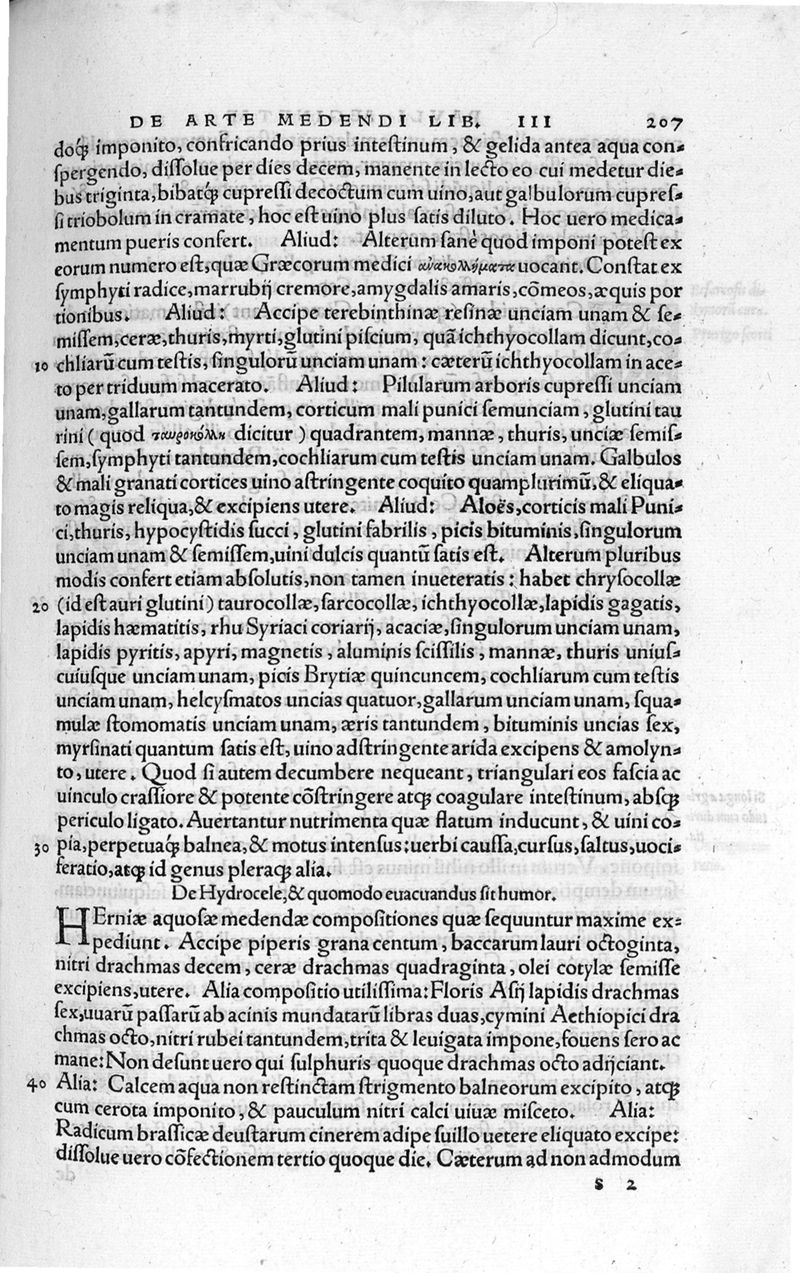 DE ARTE MEDENDI LIB. III 207
doq́ꝫ imponito, confricando prius inteſtinum, & gelida antea aqua con⸗
ſpergendo, diſſolue per dies decem, manente in lecto eo cui medetur die⸗
bus triginta, bibatq́ꝫ cupreſſi decoctum cum uino, aut galbulorum cupreſ⸗
ſi triobolum in cramate, hoc eſt uino plus ſatis diluto. Hoc uero medica⸗
mentum pueris confert. Aliud: Alterum ſanè quod imponi poteſt ex
eorum numero eſt, quæ Græcorum medici ἀνακολλήματα uocant. Conſtat ex
ſymphyti radice, marrubij cremore, amygdalis amaris, cõmeos, æquis por
tionibus. Aliud: Accipe terebinthinæ reſinæ unciam unam & ſe⸗
miſſem, ceræ, thuris, myrti, glutini piſcium, quã ichthyocollam dicunt, co⸗
10 chliarũ cum teſtis, ſingulorũ unciam unam: cæterũ ichthyocollam in ace⸗
to per triduum macerato. Aliud: Pilularum arboris cupreſſi unciam
unam, gallarum tantundem, corticum mali punici ſemunciam, glutini tau
rini (quod ταυροκόλλη dicitur) quadrantem, mannæ, thuris, unciæ ſemiſ⸗
ſem, ſymphyti tantundem, cochliarum cum teſtis unciam unam. Galbulos
& mali granati cortices uino aſtringente coquito quamplurimũ, & eliqua⸗
to magis reliqua, & excipiens utere. Aliud: Aloës, corticis mali Puni⸗
ci, thuris, hypocyſtidis ſucci, glutini fabrilis, picis bituminis, ſingulorum
unciam unam & ſemiſſem, uini dulcis quantũ ſatis eſt. Alterum pluribus
modis confert etiam abſolutis, non tamen inueteratis: habet chryſocollæ
20 (id eſt auri glutini) taurocollæ, ſarcocollæ, ichthyocollæ, lapidis gagatis,
lapidis hæmatitis, rhu Syriaci coriarij, acaciæ, ſingulorum unciam unam,
lapidis pyritis, apyri, magnetis, aluminis ſciſſilis, mannæ, thuris uniuſ⸗
cuiuſque unciam unam, picis Brytiæ quincuncem, cochliarum cum teſtis
unciam unam, helcyſmatos uncias quatuor, gallarum unciam unam, ſqua⸗
mulæ ſtomomatis unciam unam, æris tantundem, bituminis uncias ſex,
myrſinati quantum ſatis eſt, uino adſtringente arida excipens & amolyn⸗
to, utere. Quod ſi autem decumbere nequeant, triangulari eos faſcia ac
uinculo craſſiore & potente cõſtringere atqꝫ coagulare inteſtinum, abſqꝫ
periculo ligato. Auertantur nutrimenta quæ flatum inducunt, & uini co⸗
30 pia, perpetuaq́ꝫ balnea, & motus intenſus: uerbi cauſſa, curſus, ſaltus, uoci⸗
feratio, atqꝫ id genus pleraqꝫ alia.
De Hydrocele, & quomodo euacuandus ſit humor.
HErniæ aquoſæ medendæ compoſitiones quæ ſequuntur maxime ex⸗
pediunt. Accipe piperis grana centum, baccarum lauri octoginta,
nitri drachmas decem, ceræ drachmas quadraginta, olei cotylæ ſemiſſe
excipiens, utere. Alia compoſitio utiliſſima: Floris Aſij lapidis drachmas
ſex, uuarũ paſſarũ ab acinis mundatarũ libras duas, cymini Aethiopici dra
chmas octo, nitri rubei tantundem, trita & leuigata impone, fouens ſero ac
mane: Non deſunt uero qui ſulphuris quoque drachmas octo adijciant.
40 Alia: Calcem aqua non reſtinctam ſtrigmento balneorum excipito, atqꝫ
cum cerota imponito, & pauculum nitri calci uiuæ miſceto. Alia:
Radicum braſſicæ deuſtarum cinerem adipe ſuillo uetere eliquato excipe:
diſſolue uero cõfectionem tertio quoque die. Cæterum ad non admodum
S 2